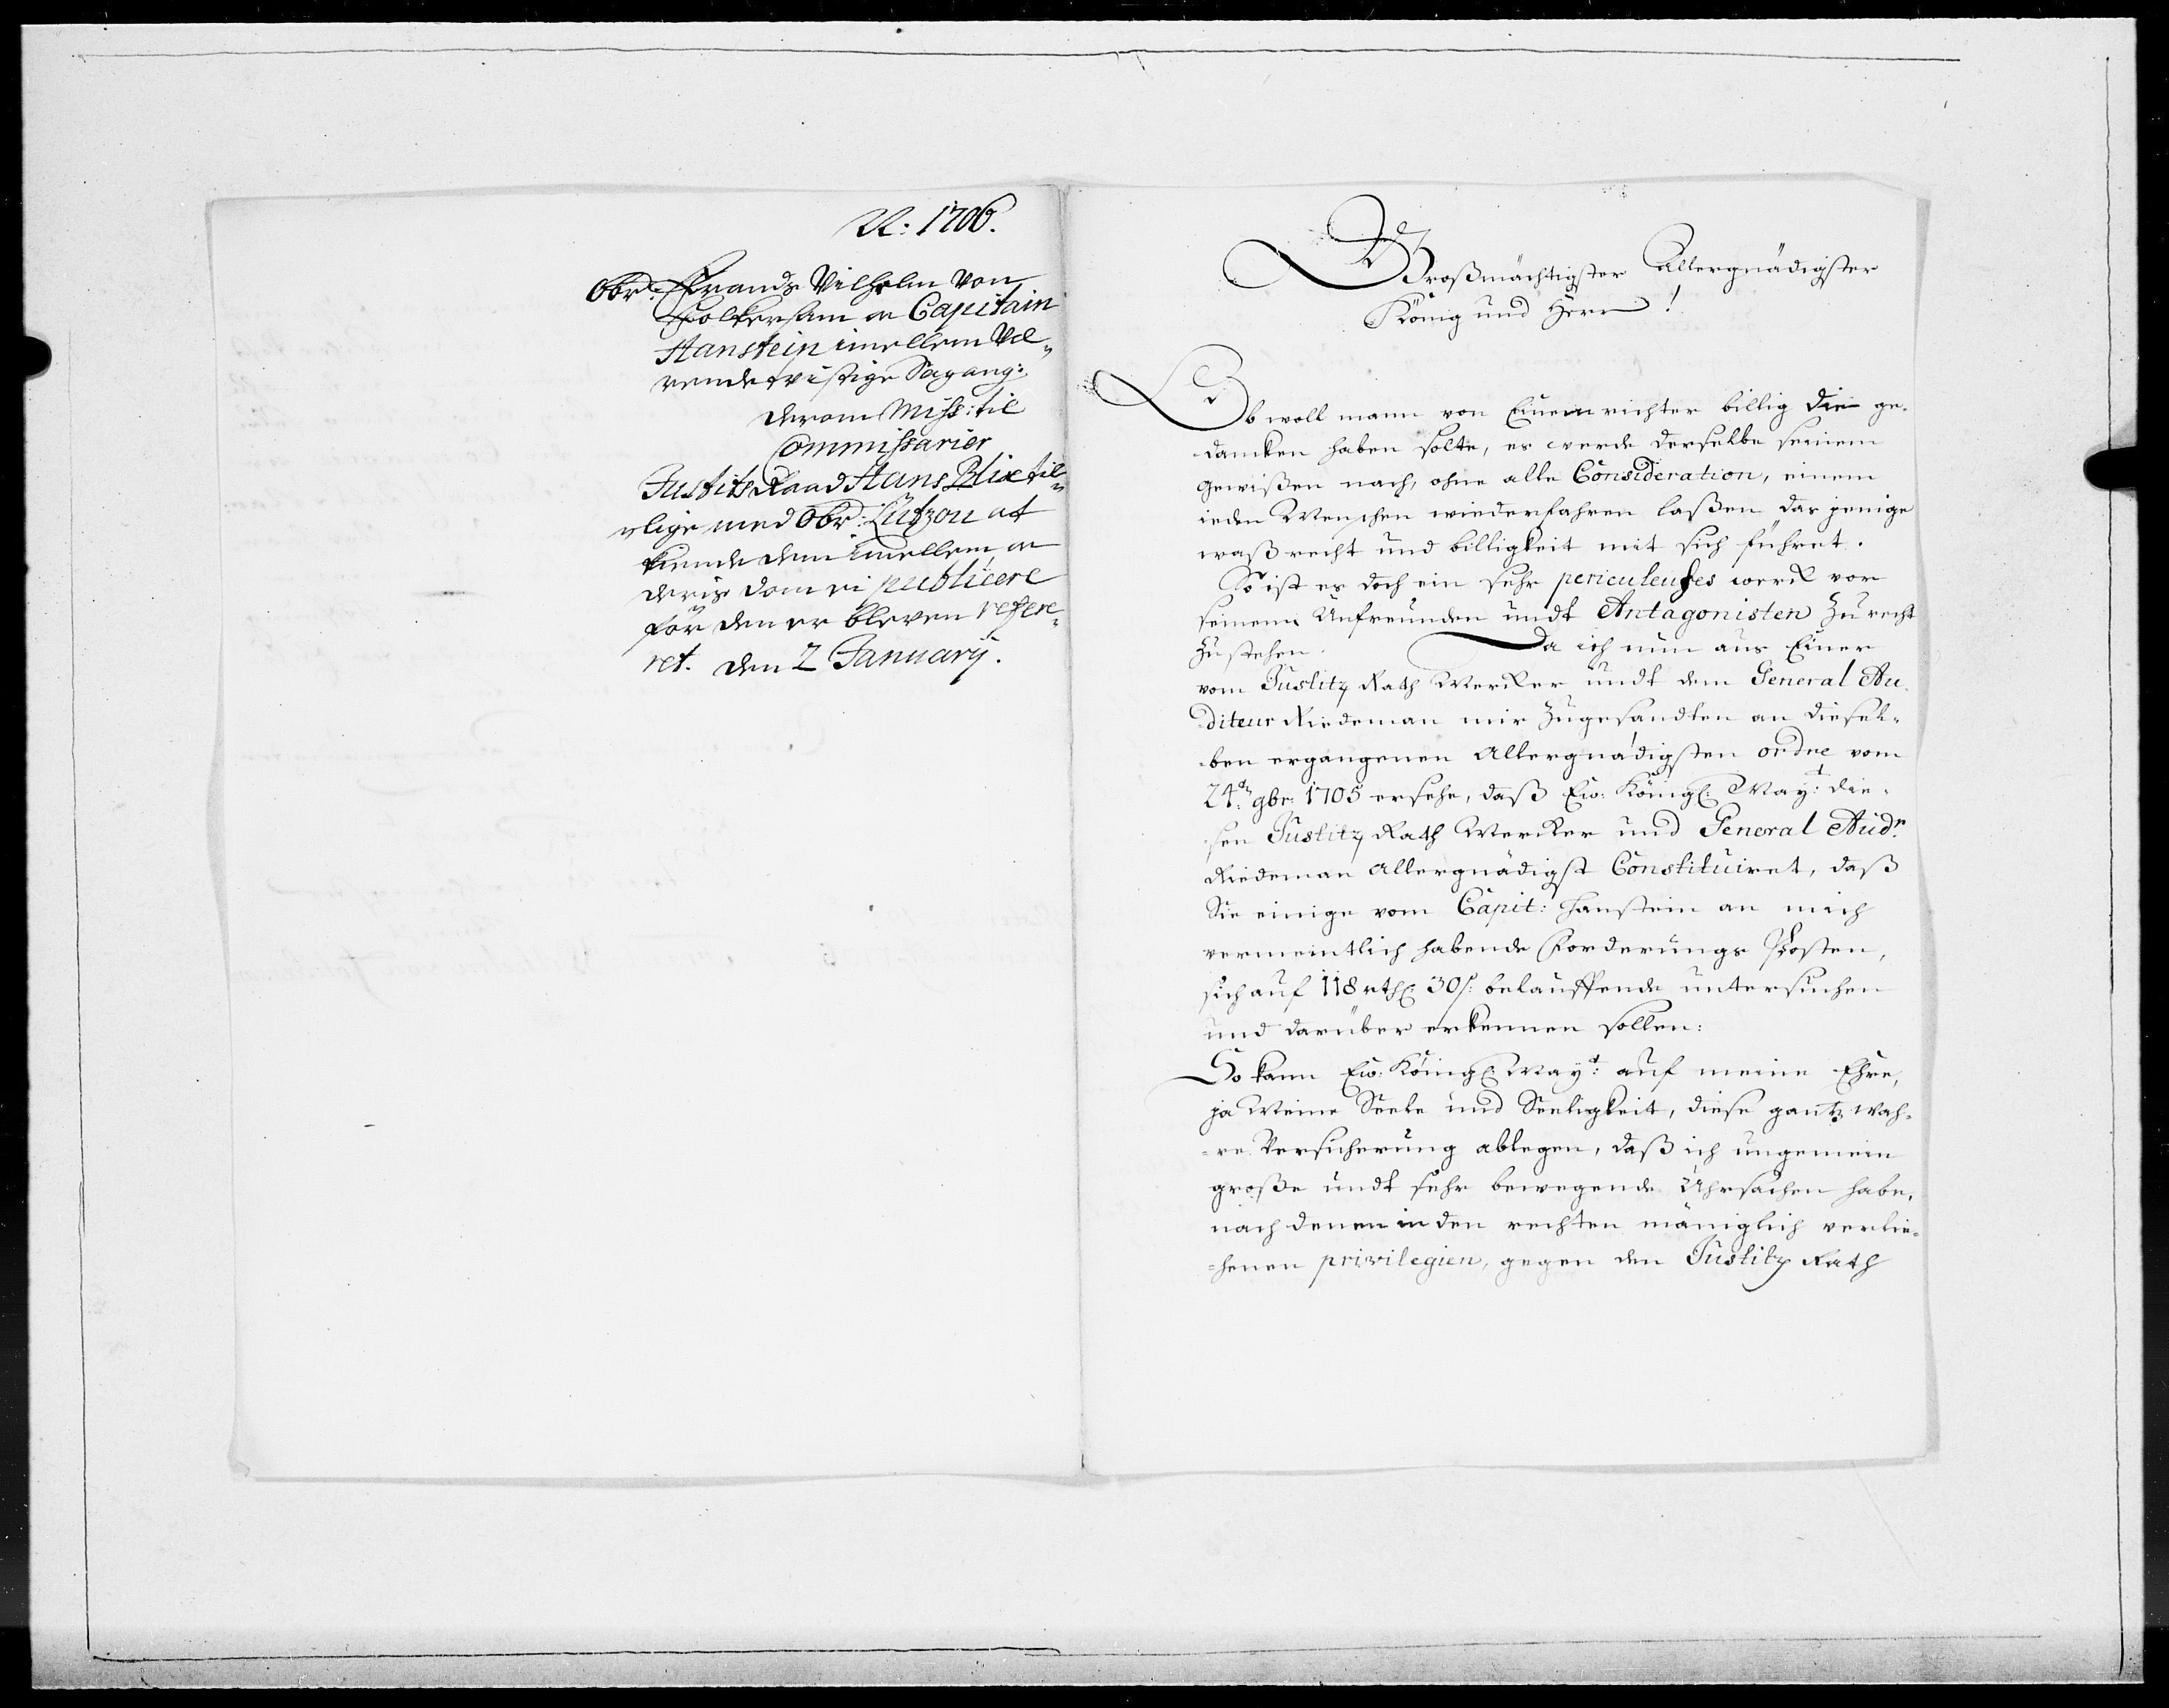 A: 1706.
Obr: Frands Vilhelm von
Folkersam oc Capitain
Hanstein imellem Væ-
rende tvistige Sag ang:
derom Miss: til
Commissarier
Justits Raad Hans Blix til-
lige med Obr: Lützou at
kiende dem imellem, oc
deris dom ei publicere
för den er bleven refere-
ret. den 2 Januarij.
Großmächtigster Allergnädigster
König und Herr!
Ob woll mann von Einem richter billig die ge-
dancken haben solte, es werde derselbe seinem
gewißen nach, ohne alle Consideration, einem
ieden Menschen wiederfahren laßen das jenige
waß recht und billigkeit mit sich führet.
So ist es doch ein sehr periculeuses werck vor
seinem Unfreunden undt Antagonisten zu recht
zu stehen. Da ich nun aus Einer
vom Justitz Rath Mercker undt dem General Au-
diteur Riedeman mir zugesandten an diesel-
ben ergangenen Allergnädigsten ordre vom
24t 9br: 1705 ersehe, daß Ew: Königl: Mayt: die-
sen Justitz Rath Mercker und General Audr
Riedeman Allergnädigst Constituiret, daß
Sie einige vom Capit: Hanstein an mich
vermeintlich habende Forderungs Posten,
sich auf 118 rthl: 30 s: belauffende untersuchen
und darüber erkennen sollen:
So kann Ew: Königl: Mayt: auf meine Ehre,
ja Meine Seele und Seeligkeit, diese gantz wah-
re Versicherung ablegen, daß ich ungemein
große undt sehr bewegende Uhrsachen habe,
nach denen in den rechten mäniglich verlie-
henen privilegien, gegen den Justitz Rath